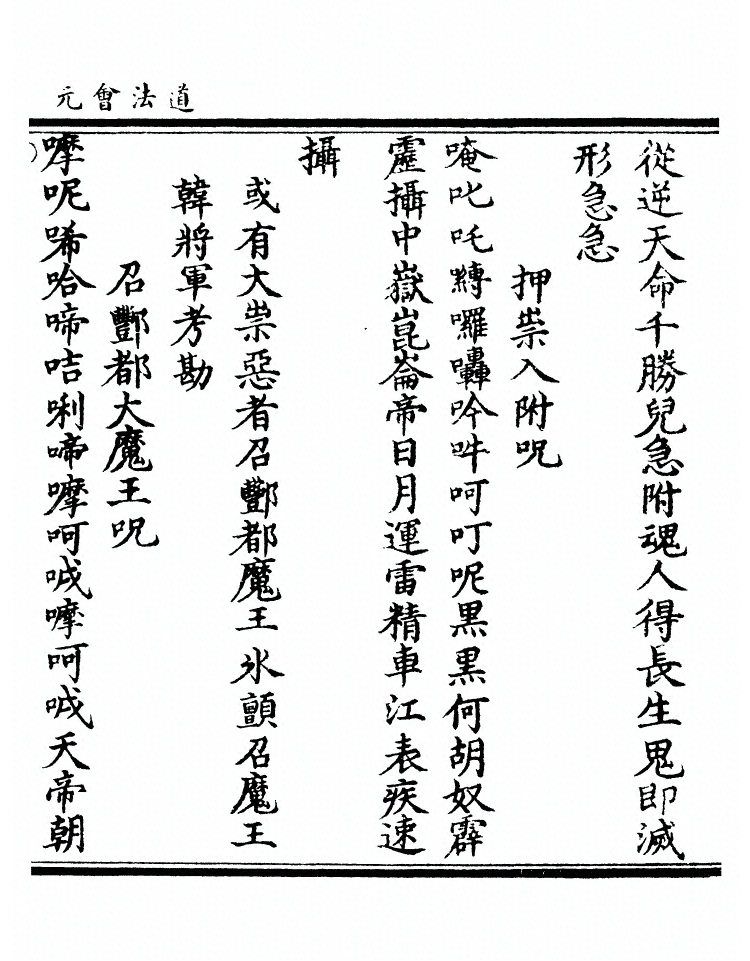 道法會元
從逆天命千勝兒急附魂人得長生鬼即滅
形急急
押祟入附呪
唵叱吒縳囉轟吟吽呵叮呢黑黑何胡奴霹
靂攝中嶽崑崙帝日月運雷精車江表疾速
攝
或有大祟惡者召酆都魔王氷顫召魔王
韓將軍考勘
召酆都大魔王呪
嚤呢唏哈啼咭唎啼嚤呵㖅嚤呵㖅天帝朝